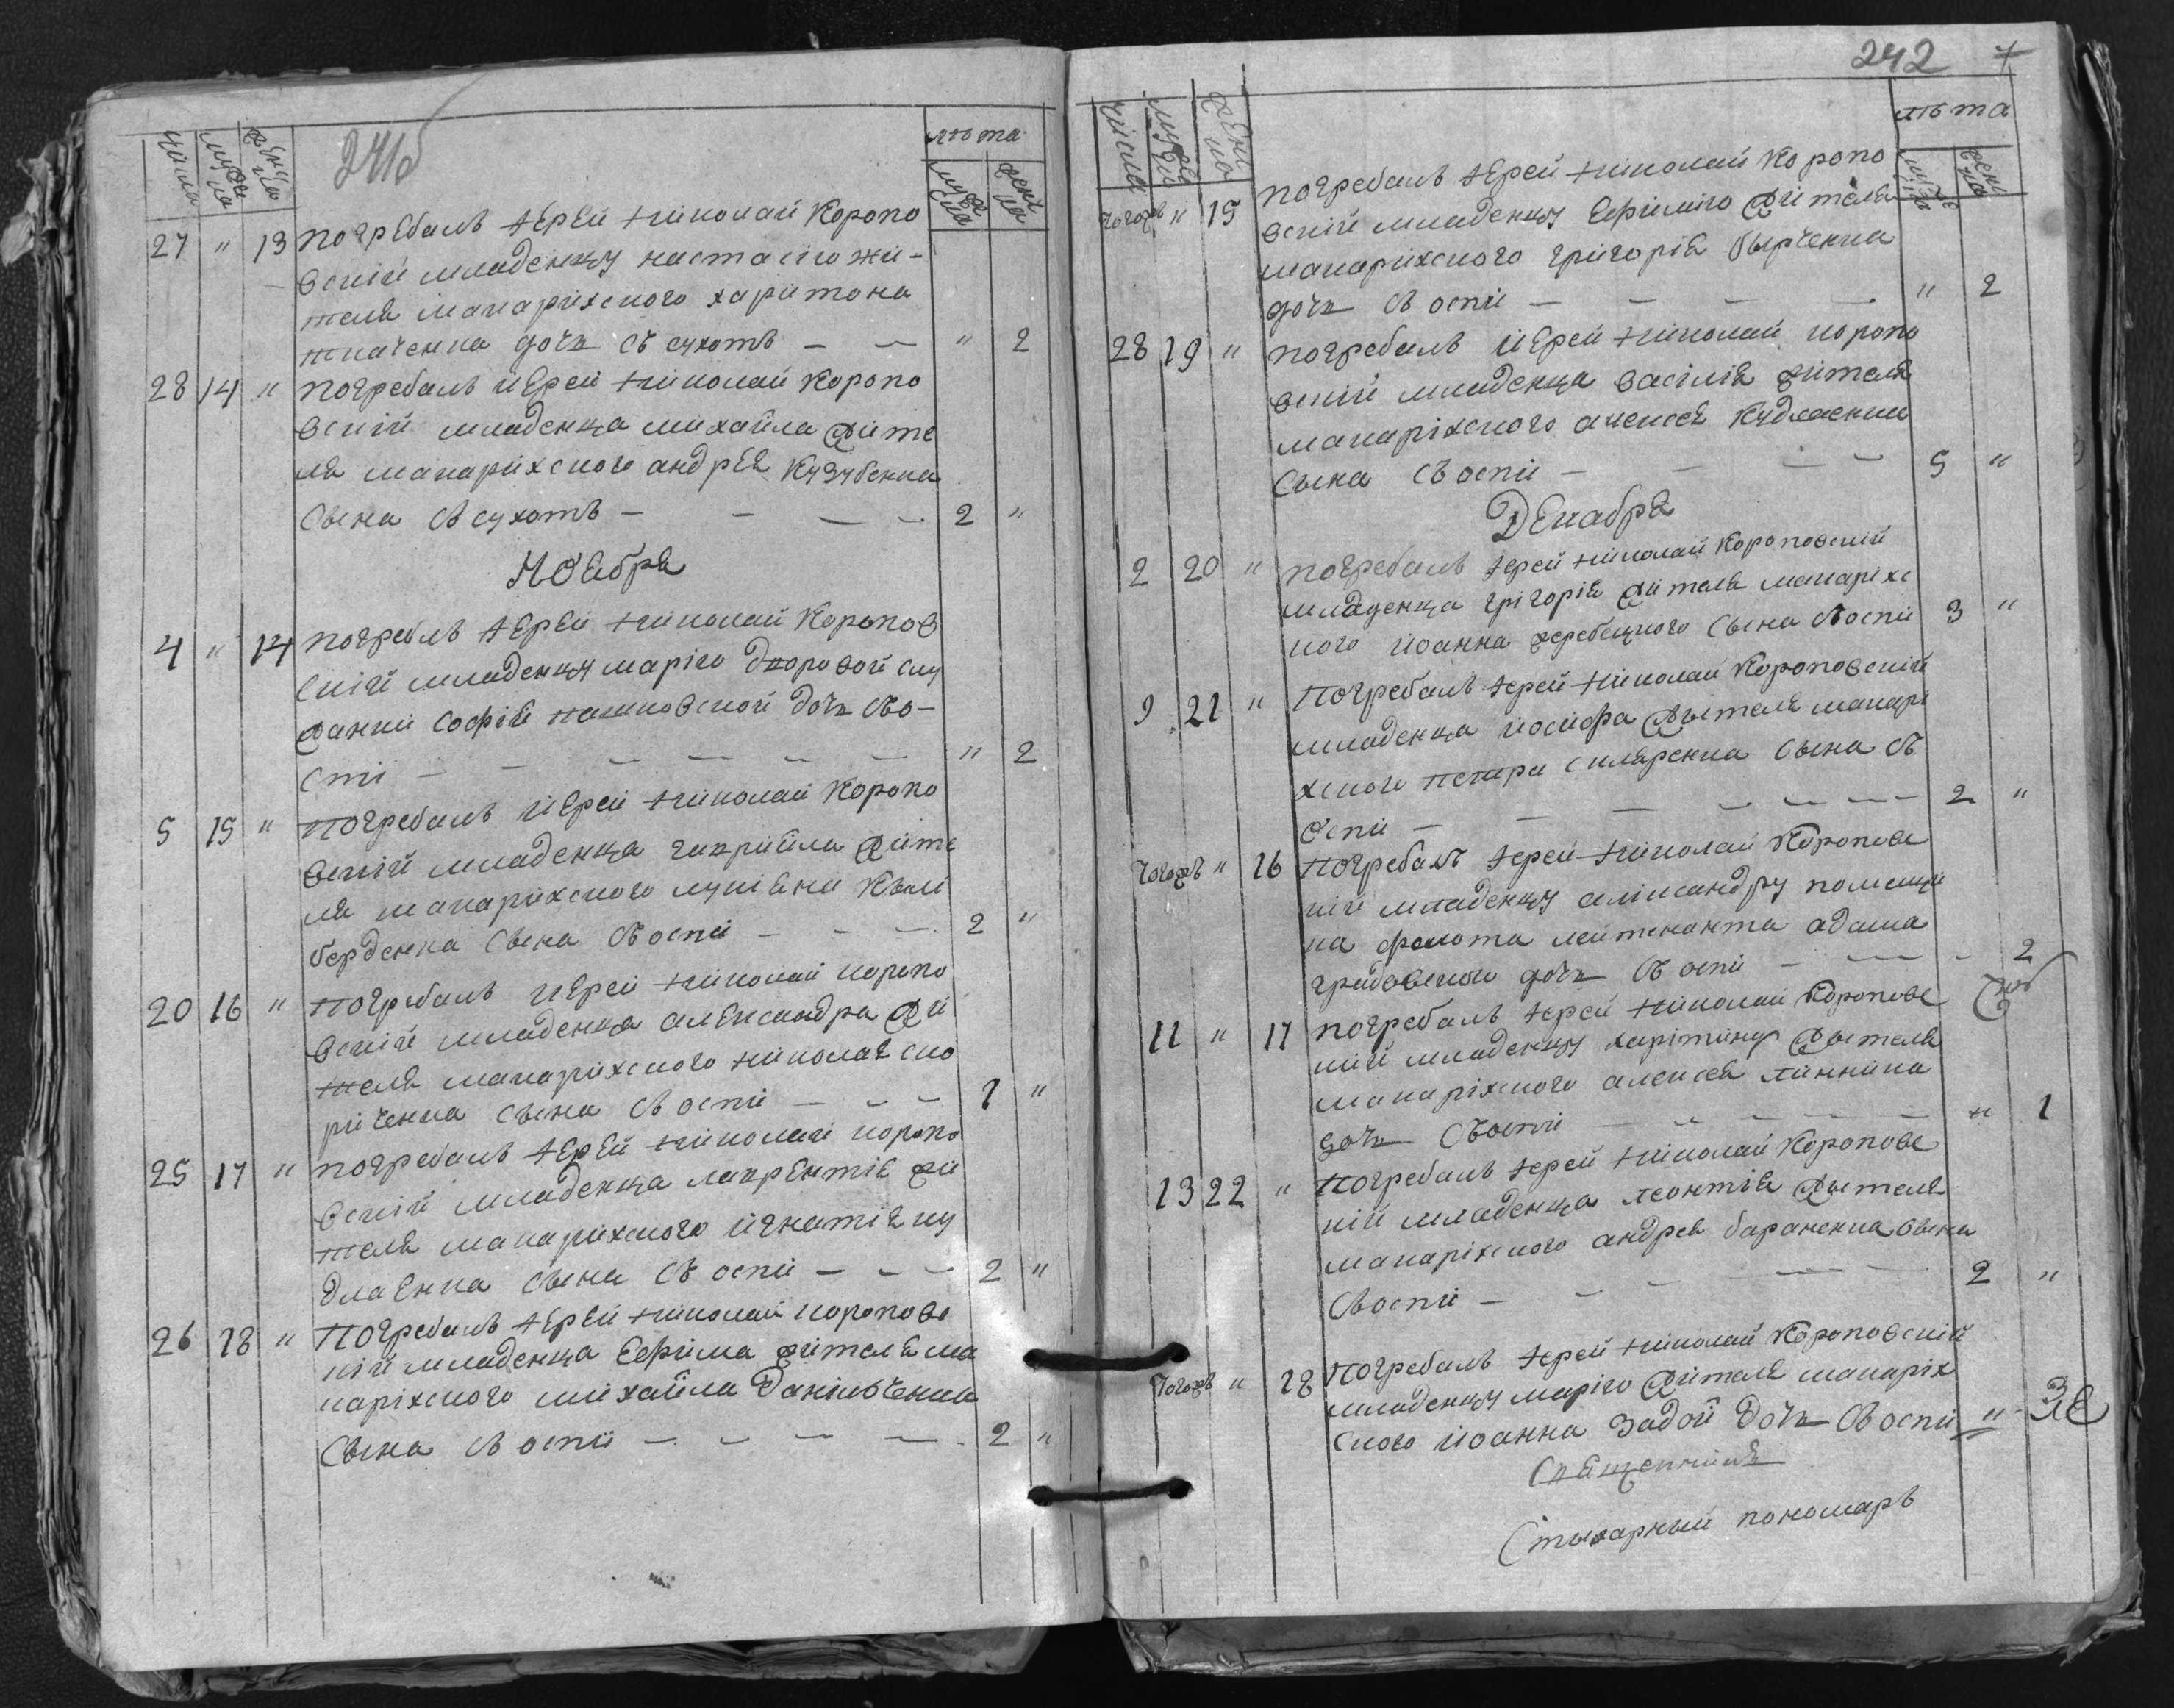 241б
лѣта
числа
мужеска
женска
мужеска
женска
27 " 13 погребалъ іерей николай коропо
вский младенцу настасію жи-
теля макарихского харитона
ткаченка дочъ съ сухотъ — — " 2
28 14 " погребалъ иерей николай коропо
вский младенца михайла жите
ля макарихского андрея кузубенка
сына съ сухотъ — — — — 2 "
Ноебря
4 " 14 погреблъ іерей николай коропов
ский младенцу марію дворовой слу
жанки софій дочъ съ во-
спи — — — — — " 2
5 15 " погребалъ иерей николай коропо
вский младенца гавриила жите
ля макарихского лукіяна
берденка сына съ воспи — — — 2 "
20 16 " погребалъ иерей николай коропо
вский младенца александра жи
теля макарихского николая ско
риченка сына съ воспи — — — 1 "
25 17 " погребалъ іерей николай коропо
вский младенца лаврентіе жи
теля макарихского игнатія ку
длаенка сына съ воспи — — — 2 "
26 18 " погребалъ іерей николай коропово
кий младенца ефима жителя ма
каріхского михайла данильченка
сына съ воспи — — — — 2 "
242
лѣта
числа
мужеска
женска
тогожъ " 15 погребалъ іерей николай коропо
вский младенцу ефимию жителя
макарихского григорія
дочъ съ воспи — — — — " 2
28 19 " погребалъ иерей николай коропо
вский младенца василія жителя
макаріхского алексея кудлаенки
сына съ воспи — — — — 5 "
Декабря
2 20 " погребалъ іерей николай короповский
младенца григорія жителя макаріхс
кого иоанна жеребецкого сына съ воспи 3 "
9 21 " погребалъ іерей николай короповский
младенца иосифа жытеля макарі
хского петра скляренка сына съ
воспи — — — — — 2 "
тогожъ " 16 погребалъ іерей николай коропове
кий младенцу аликсандру помещи
ка флота лейтенанта адама
грабовского дочъ съ воспи — — — 2
11 " 17 погребалъ іерей николай коропове
кий младенцу харітину жытеля
макаріхского алексея линника
дочъ съ воспи — — — — " 1
13 22 " погребалъ іерей николай коропове
кий младенца леонтія жытеля
макаріхского андрея бараненка сына
съ воспи — — — — 2 "
тогожъ " 18 погребалъ іерей николай короповский
младенцу марію жителя макаріх
ского иоанна задой дочъ съ воспи "
Священникъ
Стыхарный пономарь